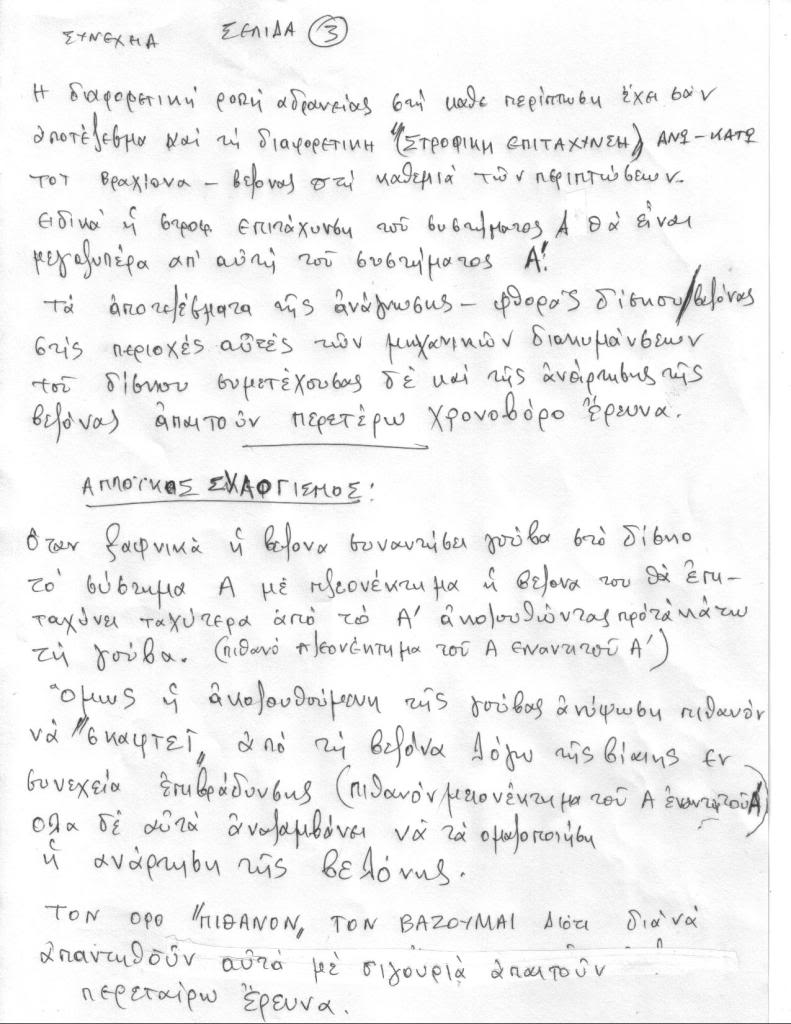 ΣΥΝΕΧΕΙΑ ΣΕΛΙΔΑ 3
Η διαφορετική ροπή αδρανείας στή καθε περίπτωση ἔχει σαν
ἀποτέλεσμα καί τή διαφορετικη "(ΣΤΡΟΦΙΚΗ ΕΠΙΤΑΧΥΝΣΗ)" ΑΝΩ-ΚΑΤΩ
τοτ βραχίονα - βελονας στή καθεμιά τῶν περιπτώσεων.
ειδικά ἡ στροφ. επιτάχυνση τοῦ συστήματος Α θά εἶναι
μεγαλυτέρα απ' αὐτή τοῦ συστήματος Α'.
Τά ἀποτελέσματα τῆς ἀνάγνωσης - φθορᾶς δίσκου/βελόνας
στίς περιοχές αὐτές τῶν μηχανικῶν διακυμάνσεων
τοῦ δίσκου συμετέχουσας δέ καί τῆς ἀνάρτησης τῆς
βελόνας ἀπαιτοῦν περετέρω χρονοβόρο ἔρευνα.
ΑΠΛΟΪΚΟΣ ΣΥΛΛΟΓΙΣΜΟΣ:
Ὅταν ξαφνικά ἡ βελονα συναντήσει γούβα στό δίσκο
τό σύστημα Α μέ πλεονέκτημα ἡ βελονα του θά ἐπι-
ταχύνει ταχύτερα ἀπό τό Α' ἀκολουθώντας πρός τά κάτω
τή γούβα. (πιθανό πλεονέκτημα τοῦ Α εναντι τοῦ Α')
Ὅμως ἡ ἀκολουθούμενη τῆς γούβας ἀνύψωση πιθανόν
νά "σκαφτεῖ" ἀπό τή βελόνα λόγω τῆς βίαιης εν
συνεχεία ἐπιβράδυνσης (πιθανόν μειονέκτημα τοῦ Α ἐναντι τοῦ Α')
ολα δέ αὐτά ἀναλαμβάνει νά τά ομαλοποιήση
ἡ ἀνάρτηση τῆς βελόνης.
ΤΟΝ ΟΡΟ "ΠΙΘΑΝΟΝ" ΤΟΝ ΒΑΖΟΥΜΑΙ διότι διά νά
ἀπαντηθοῦν αὐτά μέ σιγουριά ἀπαιτοῦν
περεταίρω ἔρευνα.